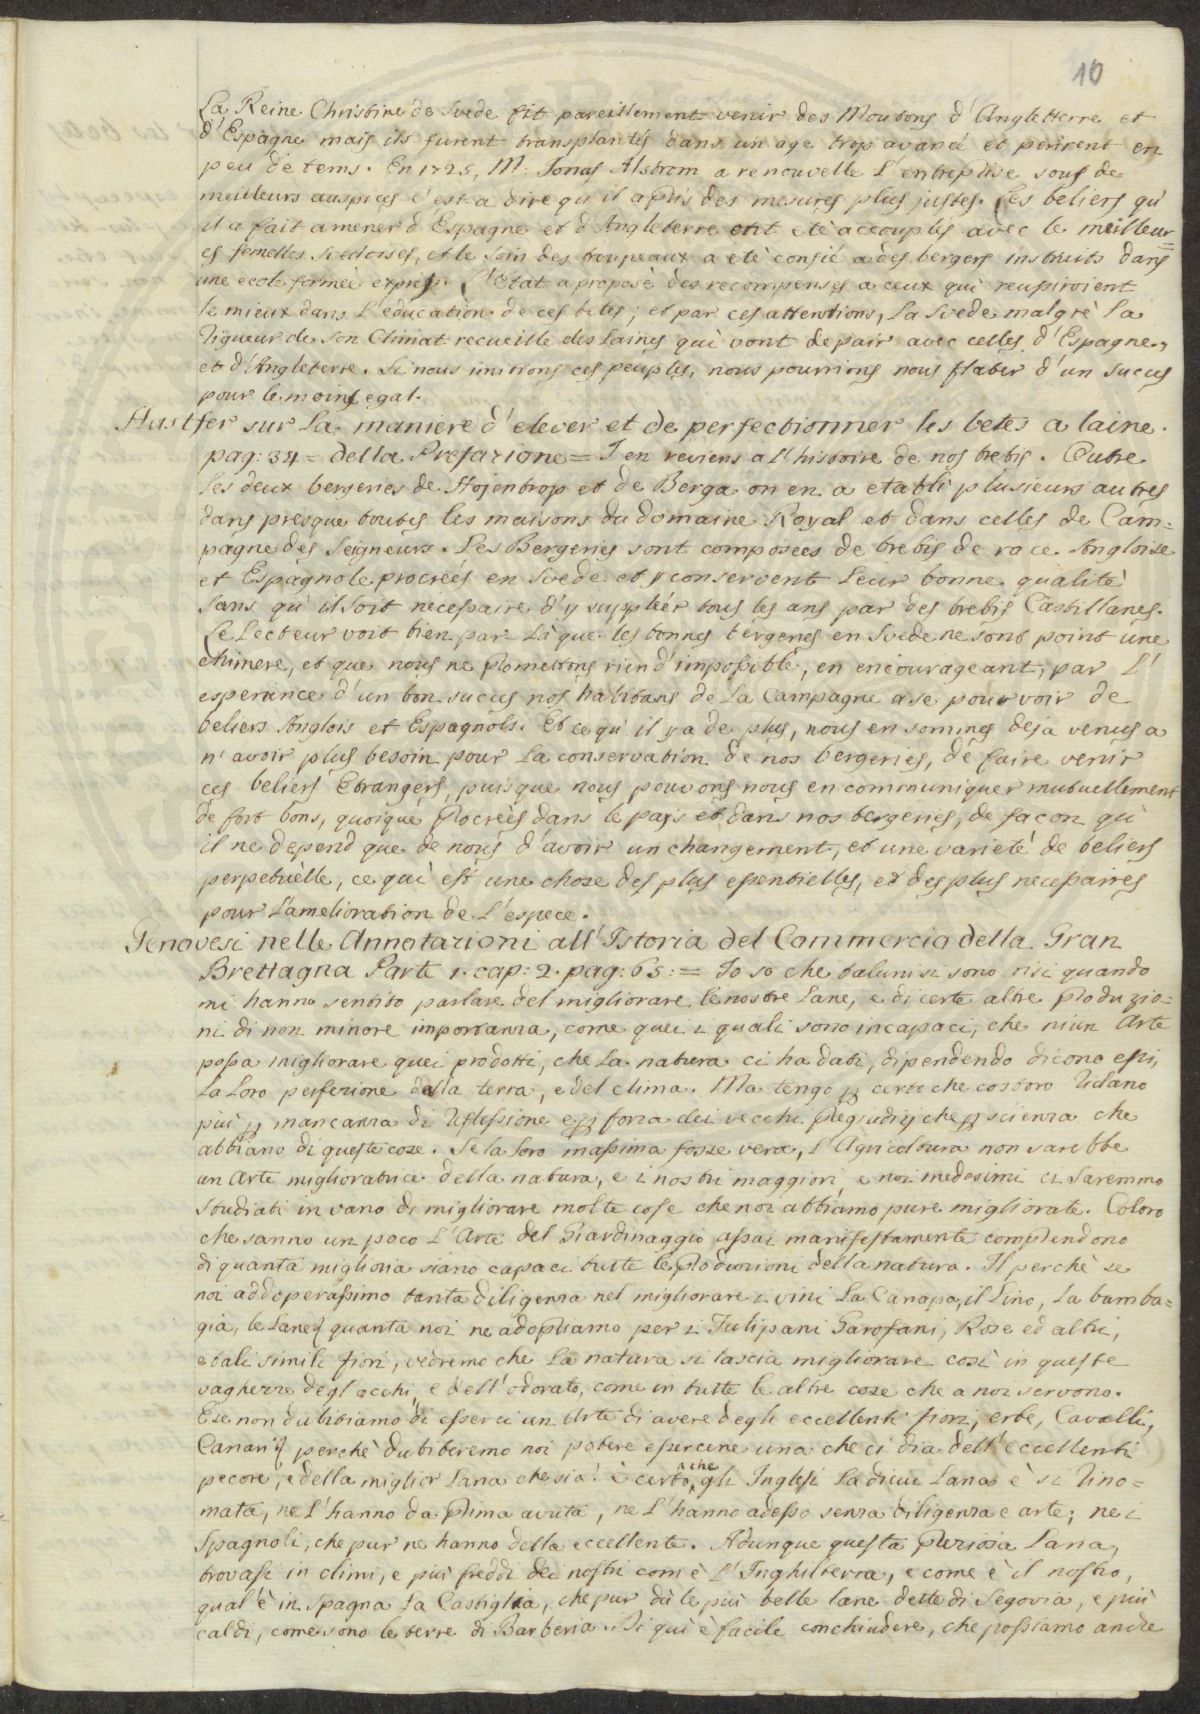 10
La Reine Christine de Svede fit pareillement venir des Moutons d'Angletterre et
d'Espagne mais ils furent transplantés dans un age trop avancé et perirent en
peu de tems. En 1725, M. Jonas Alstrom a renouvelle l'entreprise sous de
meilleurs auspices c'est a dire qu'il a pris des mesures plus justes. Les beliers qu'
il a fait amener d'Espagne et d'Angleterre ont eté accouplés avec le meilleur=
es femelles Svedoises, et le soin des troupeaux a etè confié a des bergers instruits dans
une ecole formeè exprés. L'Etat a proposè des recompenses a ceux qui reussiroient
le mieux dans l'education de ces betes; et par ces attentions, la Svede malgrè la
rigueur de son Climat recueille des laines qui vont de pair avec celles d'Espagne,
et d'Angleterre. Si nous imitions ces peuples, nous pourrions nous flater d'un succes
pour le moins egal.
Hastfer sur la maniere d'elever et de perfectionner les betes a laine.
pag: 34 = della Prefazione = J'en reviens a l'histoire de nos brebis. Outre
les deux bergeries de Hojentrop et de Berga on en a etabli plusieurs autres
dans presque toutes les maisons du domaine Royal et dans celles de Cam=
pagne des Seigneurs. Les Bergeries sont composees de brebis de race Angloise
et Espagnole procreés en Svede et y conservent leur bonne qualitè
sans qu'il soit necessaire d'y suppleér tous les ans par des brebis Castillanes.
Le Lecteur voit bien par là que les bonnes bergeries en Svede ne sont point une
chimere, et que nous ne promettons rien d'impossible, en encourageant, par l'
esperance d'un bon succes nos habitans de la Campagne a se pourvoir de
beliers Anglois et Espagnols. Et ce qu'il y a de plus, nous en sommes deja venus a
n'avoir plus besoin pour la conservation de nos bergeries, de faire venir
ces beliers Etrangers, puisque nous pouvons nous en communiquer mutuellement
de fort bons, quoique procreès dans le pays et dans nos bergeries, de facon qu'
il ne depend que de nous d'avoir un changement, et une varieté de beliers
perpetuèlle, ce qui est une chose des plus essentielles, et des plus necessaires
pour l'amelioration de l'espece.
Genovesi nelle Annotazioni all'Istoria del Commercio della Gran
Brettagna Parte 1. cap: 2. pag: 65: = Io so che taluni si sono risi quando
mi hanno sentito parlare del migliorare le nostre Lane, e di certe altre Produzio=
ni di non minore importanza, come quei i quali sono incapaci, che niun Arte
possa migliorare quei prodotti, che la natura ci ha dati, dipendendo dicono essi,
la loro perfezione dalla terra, e del clima. Ma tengo per certo che costoro ridano
più per mancanza di riflessione e per forza dei vecchi pregiudizj che per scienza che
abbiano di queste cose. Se la loro massima fosse vera, l'Agricoltura non sarebbe
un Arte miglioratrice della natura, e i nostri maggiori, e noi medesimi ci saremmo
studiati in vano di migliorare molte cose che noi abbiamo pure migliorate. Coloro
che sanno un poco l'Arte del Giardinaggio assai manifestamente comprendono
di quanta miglioria siano capaci tutte le Produzioni della natura. Il perchè se
noi addoperassimo tanta diligenza nel migliorare i vini la Canapa, il Lino, la bamba=
gia, le Lane quanta noi ne adopriamo per i Tulipani Garofani, Rose ed altri,
e tali simili fiori, vedremo che la natura si lascia migliorare così in queste
vaghezze degl'occhi, e dell'odorato, come in tutte le altre cose che a noi servono.
E se non dubitiamo di esserci un Arte di avere degli eccellenti fiori, erbe, Cavalli,
Canarij perchè dubiteremo noi potere essercene una che ci dia dell'eccellenti
pecore, e della miglior Lana che sia? è certo, che gli Inglesi la di cui Lana è si rino=
mata, ne l'hanno da prima avuta, ne l'hanno adesso senza diligenza e arte; ne i
Spagnoli, che pur ne hanno della eccellente. Adunque questa preziosa Lana,
trovasi in climi, e più freddi dei nostri com'è l'Inghilterra, e come è il nostro,
qual'è in Spagna la Castiglia, che pur dà le più belle lane dette di Segovia, e più
caldi, come sono le terre di Barberia. Di qui è facile conchiudere, che possiamo anche